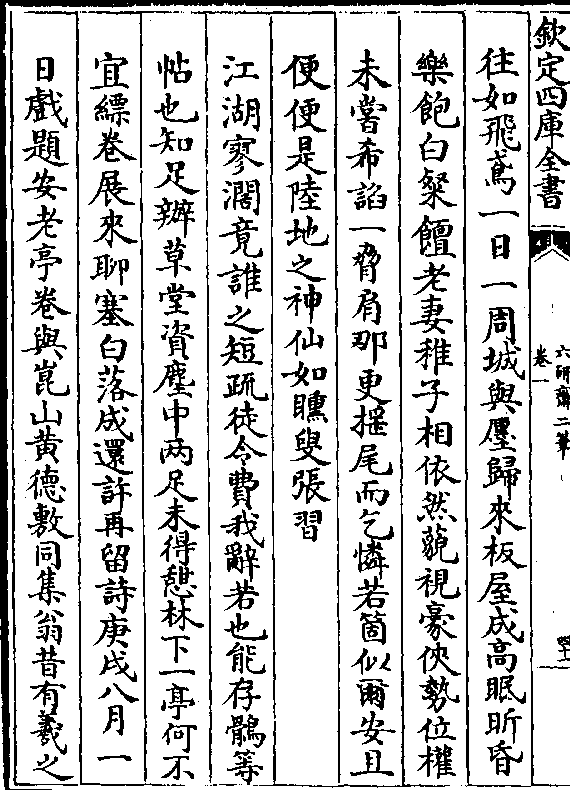 欽定四庫全書
六研齋二筆
卷一
往如飛鳶一日一周城與㕓歸來板屋成高眠昕昏
樂飽白粲饘老妻稚子相依然藐視豪俠勢位權
未嘗希諂一脅肩那更揺尾而乞憐若箇似爾安且
便便是陸地之神仙如臞叟張習
江湖寥濶竟誰之短疏徒令費我辭若也能存鶻等
帖也知足辦草堂資塵中两足未得憩林下一亭何不
宜縹卷展來聊塞白落成還許再留詩庚戌八月一
日戲題安老亭卷與崑山黄德敷同集翁昔有羲之